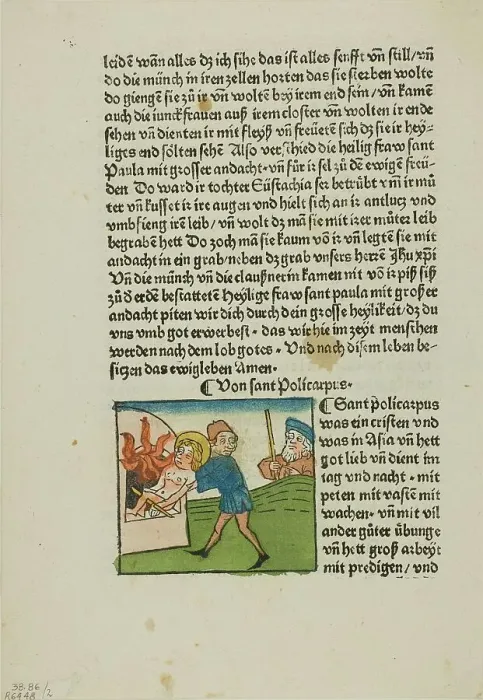 leidē wān alles dz ich sihe das ist alles senfft vn̄ still/vn̄
do die münch in iren zellen horten das sie sterben wolte
do giengē sie zů ir vn̄ woltē bey irem end sein/vn̄ kamē
auch die iunckfrauen auß irem closter vn̄ wolten ir ende
sehen vn̄ dienten ir mit fleyß vn̄ freüetē sich dz sie ir hey⸗
liges end sölten sehē Also verschied die heilig fraw sant
Paula mit grosser andacht·vn̄ für ir sel zů dē ewigē freü⸗
den Do ward ir tochter Eüstachia ser betrübt vm̄ ir mů
ter vn̄ kusset ir ire augen vnd hielt sich an ir antlucz vnd
vmbfieng irē leib/vn̄ wolt dz mā sie mit irer můter leib
begrabē hett Do zoch mā sie kaum vō ir vn̄ legtē sie mit
andacht in ein grab/neben dz grab vnsers herrē Jhu xp̄i
Vn̄ die münch vn̄ die claußnerin kamen nit vō ir piß sie
zů d̓ erdē bestattetē Heylige fraw sant paula mit grosser
andacht piten wir dich durch dein grosse heylikeit/dz du
vns vmb got erwerbest·das wir hie im zeyt menschen
werden nach dem lob gotes·Vnd nach disem leben be⸗
siczen das ewig leben Amen·
¶ Von sant Policarpus·
¶ Sant Policarpus
was ein cristen vnd
was in Asia vn̄ hett
got lieb vn̄ dient im
tag vnd nacht·mit
peten mit vastē mit
wachen·vn̄ mit vil
ander gůter übunge
vn̄ hett groß arbeyt
mit predigen/vnd
38.86/2
R6448